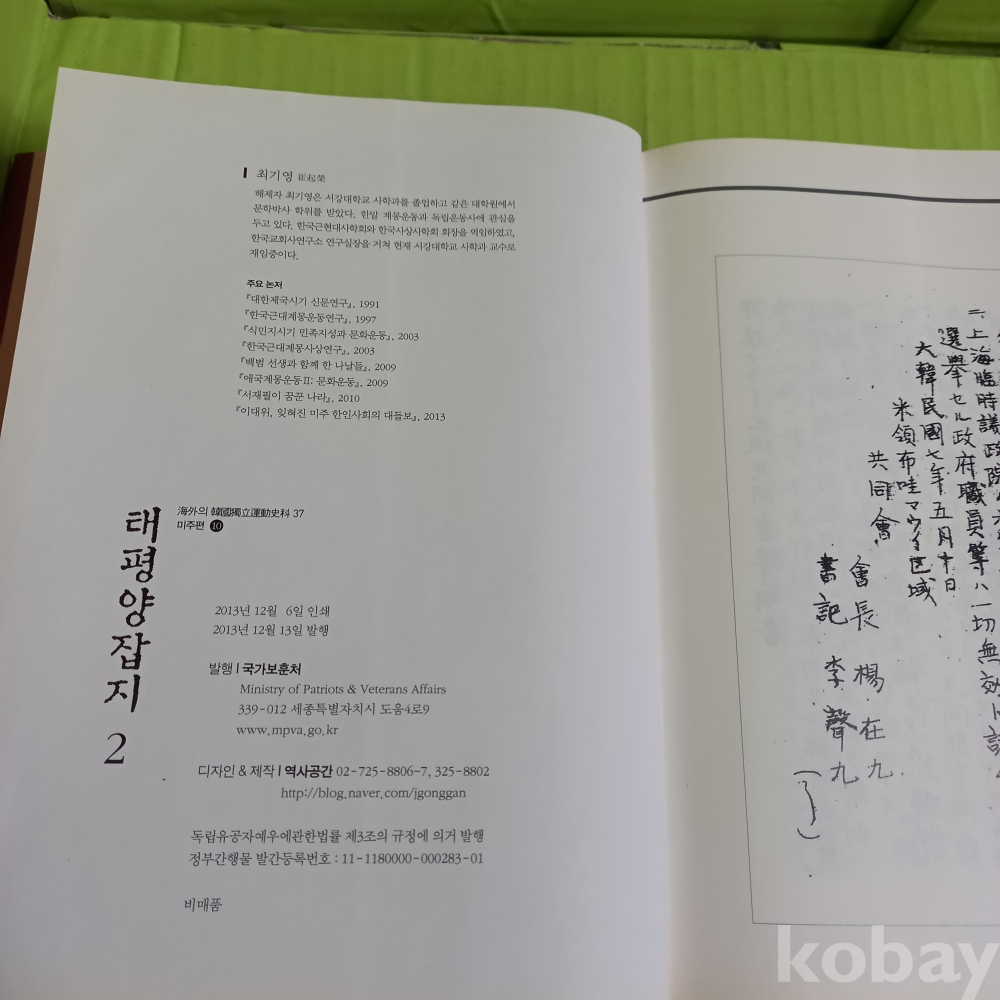 최기영 崔起榮
해제자 최기영은 서강대학교 사학과를 졸업하고 같은 대학원에서
문학박사 학위를 받았다. 한말 계몽운동과 독립운동사에 관심을
두고 있다. 한국근현대사학회와 한국사상사학회 회장을 역임하였고,
한국교회사연구소 연구실장을 거쳐 현재 서강대학교 사학과 교수로
재임중이다.
주요 논저
『대한제국시기 신문연구』, 1991
『한국근대계몽운동연구』, 1997
『식민지시기 민족지성과 문화운동』, 2003
『한국근대계몽사상연구』, 2003
『백범 선생과 함께 한 나날들』, 2009
『애국계몽운동Ⅱ: 문화운동』, 2009
『서재필이 꿈꾼 나라』, 2010
『이대위, 잊혀진 미주 한인사회의 대들보』, 2013
태평양잡지 2
海外의 韓國獨立運動史料 37
미주편 ⑩
2013년 12월 6일 인쇄
2013년 12월 13일 발행
발행 | 국가보훈처
Ministry of Patriots & Veterans Affairs
339-012 세종특별자치시 도움4로9
www.mpva.go.kr
디자인 & 제작 | 역사공간 02-725-8806~7, 325-8802
http://blog.naver.com/jgonggan
독립유공자예우에관한법률 제3조의 규정에 의거 발행
정부간행물 발간등록번호 : 11-1180000-000283-01
비매품
二、上海臨時議政院
選擧セル政府職員等ハ一切無効
大韓民國七年五月十日
米領布哇マウイ区域
共同會
會長 楊在九
書記 李聲九
kobay